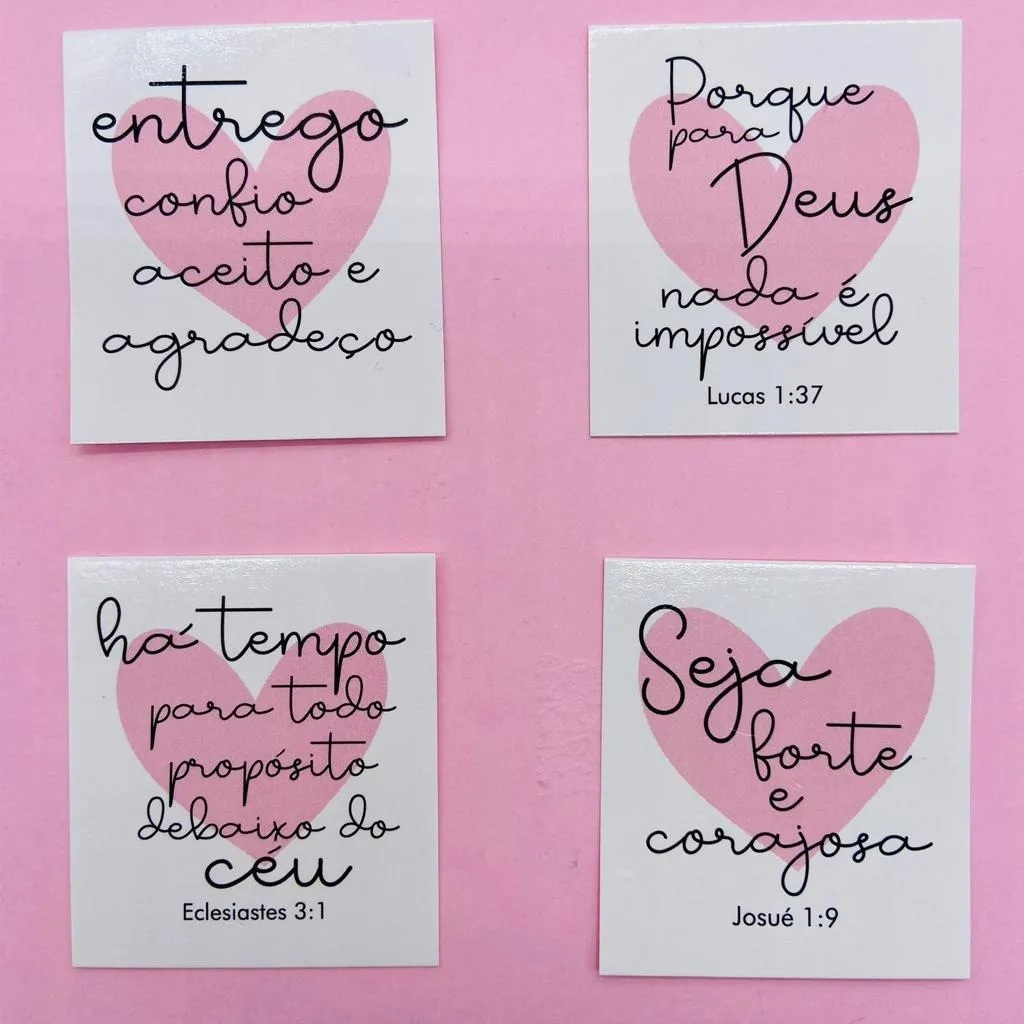 entrego
confio
aceito e
agradeço
Porque
para
Deus
nada é
impossível
Lucas 1:37
há tempo
para todo
propósito
debaixo do
céu
Eclesiastes 3:1
Seja
forte
e
corajosa
Josué 1:9